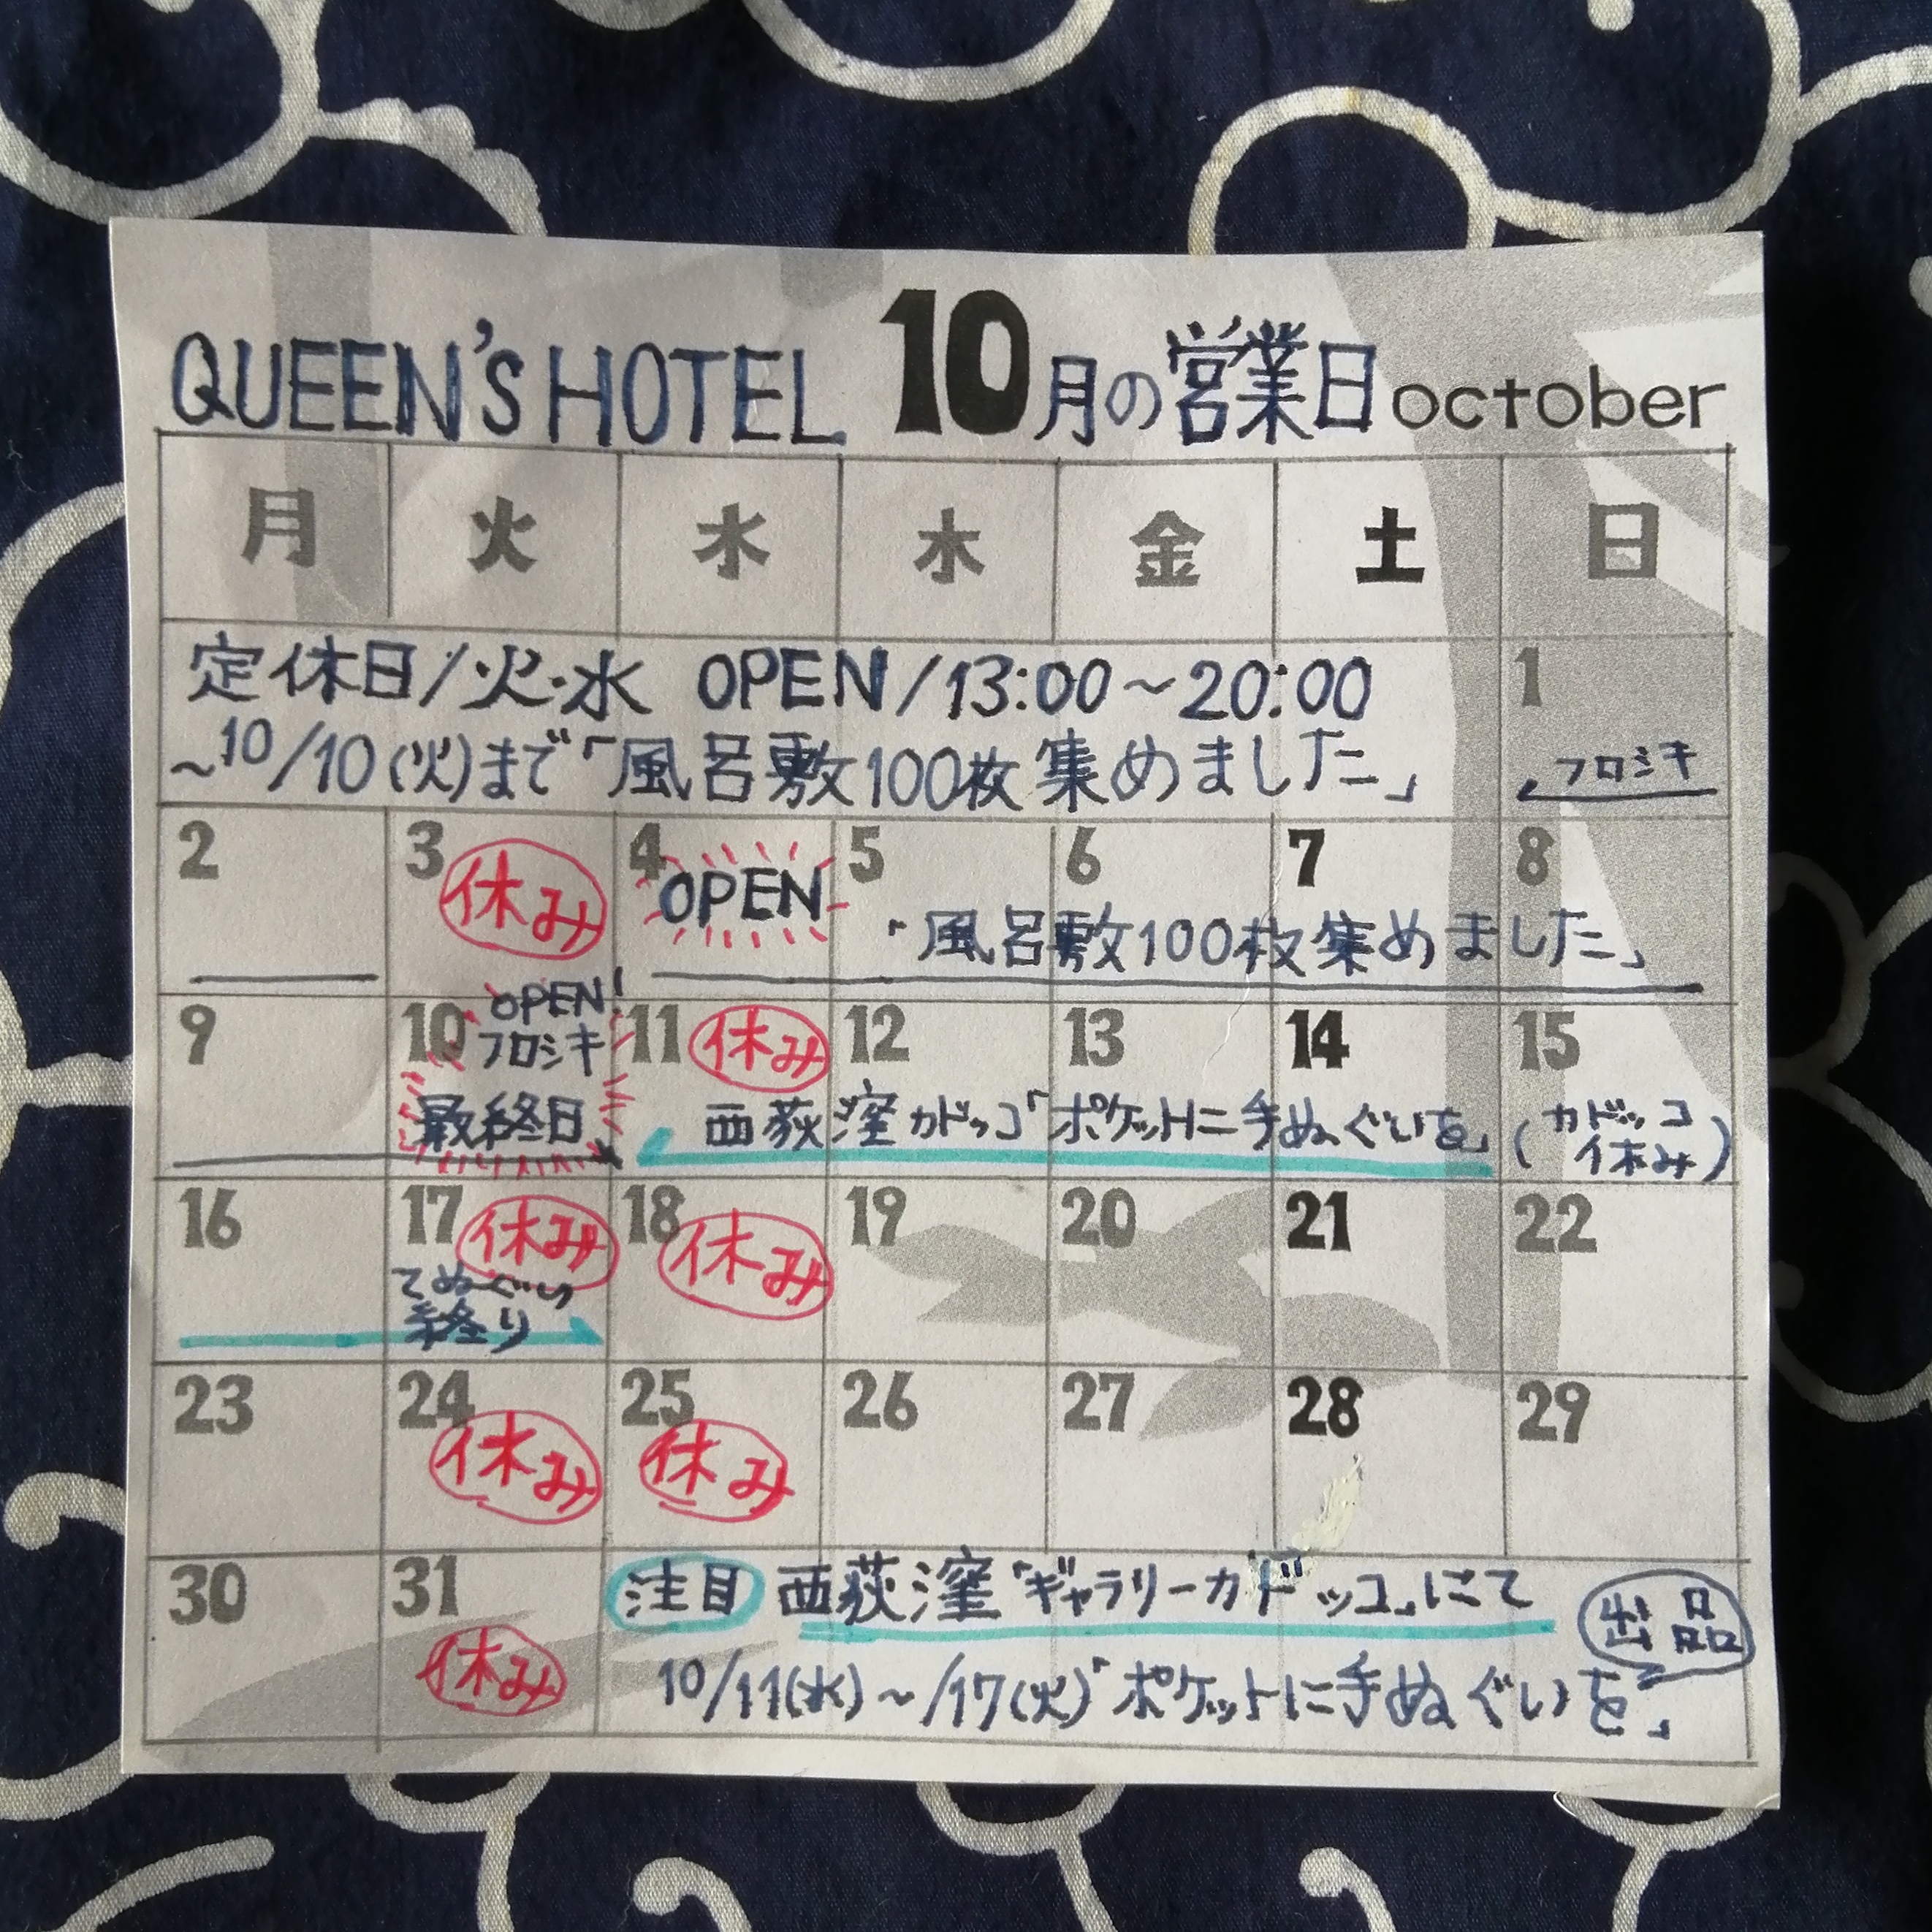 QUEEN'S HOTEL 10月の営業日 october
月 火 水 木 金 土 日
定休日/火・水 OPEN/13:00〜20:00
〜10/10(火)まで「風呂敷100枚集めました」
1
フロシキ
2 3 休み 4 OPEN 5 6 7 8
「風呂敷100枚集めました」
9 10 OPEN! 11 休み 12 13 14 15
フロシキ
最終日
西荻窪カドッコ「ポケットに手ぬぐいを」
(カドッコ
休み)
16 17 休み 18 休み 19 20 21 22
てぬぐい
終り
23 24 休み 25 休み 26 27 28 29
30 31 休み
注目 西荻窪「ギャラリーカドッコ」にて 出品
10/11(水)〜/17(火)「ポケットに手ぬぐいを」